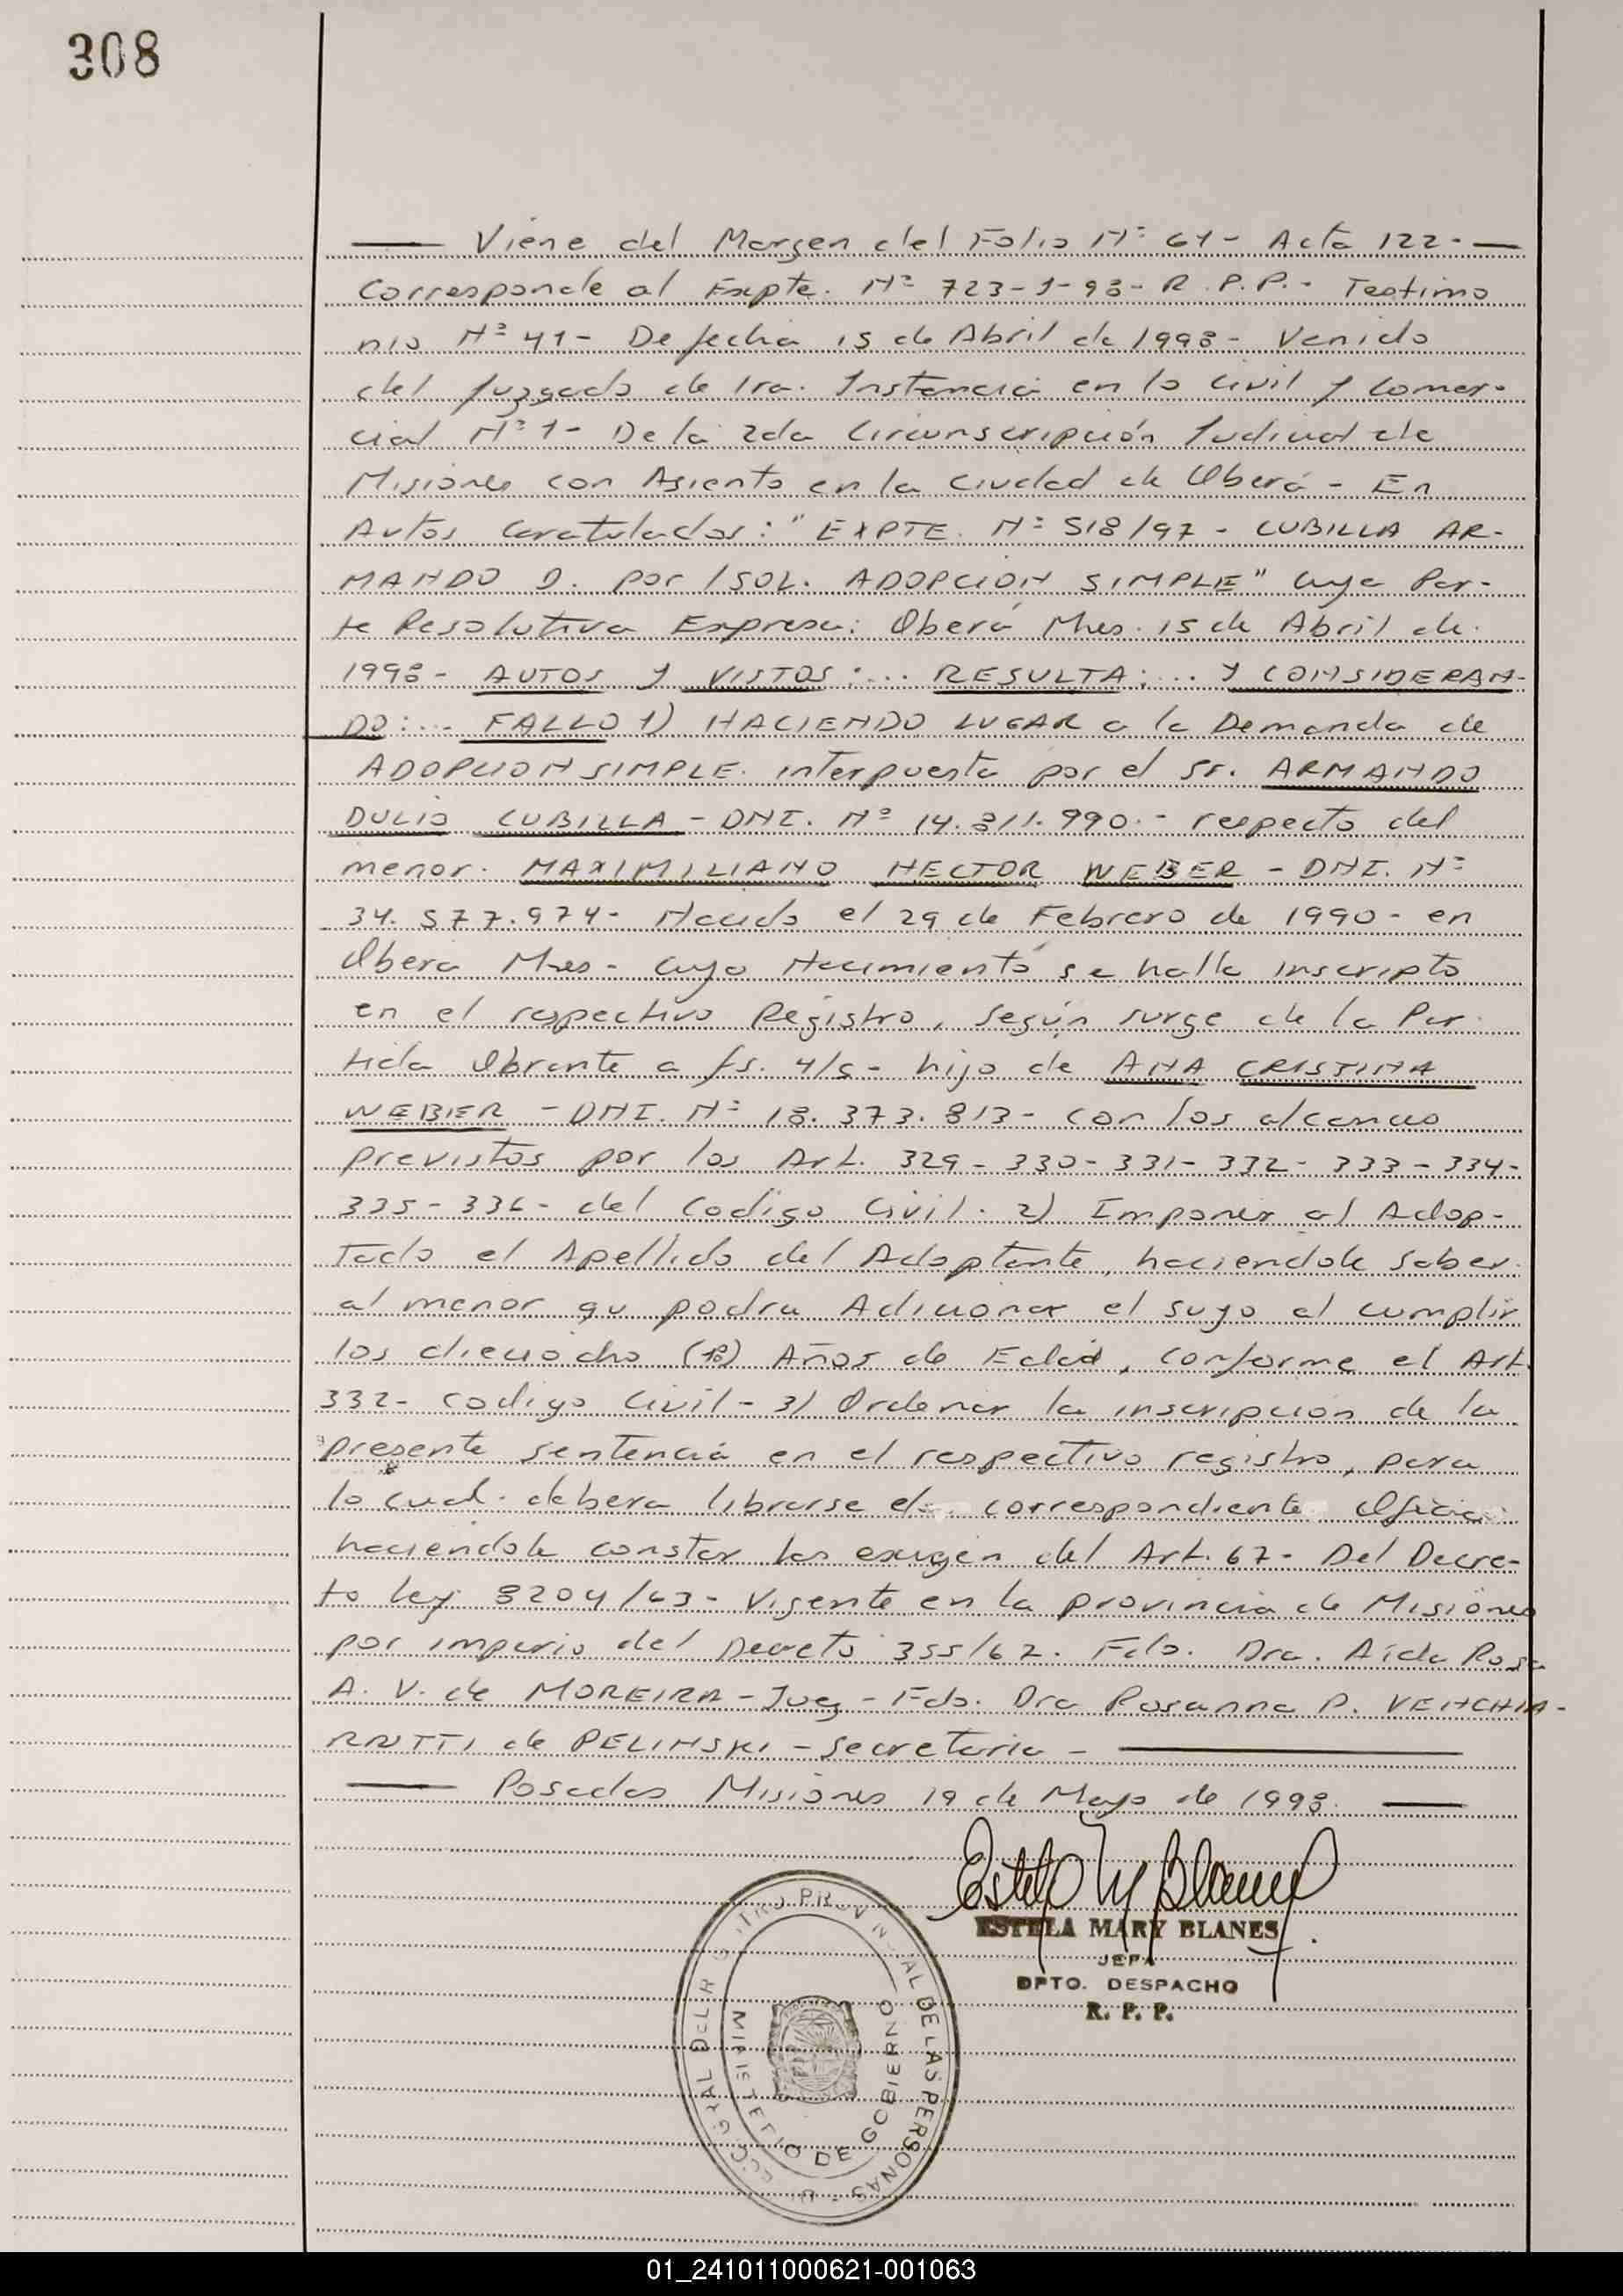 308
Viene del Margen del Folio Nº 61- Acta 122.-
Corresponde al Expte. Nº 723-J-98- R.P.P.- Testimo
nio Nº 41- De fecha 15 de Abril de 1998- Venido
del Juzgado de 1ra. Instancia en lo Civil y Comer-
cial Nº 1- De la 2da Circunscripción Judicial de
Misiones con Asiento en la Ciudad de Oberá - En
Autos Caratulados: "EXPTE. Nº 518/97 - CUBILLA AR-
MANDO D. por /SOL. ADOPCION SIMPLE" Cuya Par-
te Resolutiva Expresa: Oberá Mnes. 15 de Abril de
1998- AUTOS Y VISTOS:... RESULTA:... Y CONSIDERAN-
DO:... FALLO 1) HACIENDO LUGAR a la Demanda de
ADOPCION SIMPLE interpuesta por el Sr. ARMANDO
DULIO CUBILLA - DNI. Nº 14.811.990.- respecto del
menor MAXIMILIANO HECTOR WEBER - DNI. Nº
34.577.974- Nacido el 29 de Febrero de 1990- en
Oberá Mnes- Cuyo Nacimiento se halla inscripto
en el respectivo Registro, según surge de la Par
tida Obrante a fs. 4/5- hijo de ANA CRISTINA
WEBER - DNI. Nº 18.373.813- con los alcances
previstos por los Art. 329- 330- 331- 332- 333- 334-
335- 336- del Codigo Civil. 2) Imponer al Adop-
tado el Apellido del Adoptante, haciendole saber
al menor qu podra Adicionar el suyo al cumplir
los dieciocho (18) Años de Edad, conforme el Art.
332- Codigo Civil- 3) Ordenar la inscripción de la
presente sentencia en el respectivo registro, para
lo cual debera librarse el correspondiente Oficio
haciendole constar las exigen del Art. 67- Del Decre-
to Ley 8204/63- Vigente en la provincia de Misiones
por imperio del Decreto 355/67. Fdo. Dra. Aida Rosa
A. V. de MOREIRA - Juez - Fdo. Dra Rosanna P. VENCHIA-
RNTTI de PELINSKI - Secretaria -
Posadas Misiones 19 de Mayo de 1998.
ESTELA MARY BLANES
JEFA
DPTO. DESPACHO
R. P. P.
GRAL DEL REGISTRO PROVINCIAL DE LAS PERSONAS
MINISTERIO DE GOBIERNO
01_241011000621-001063